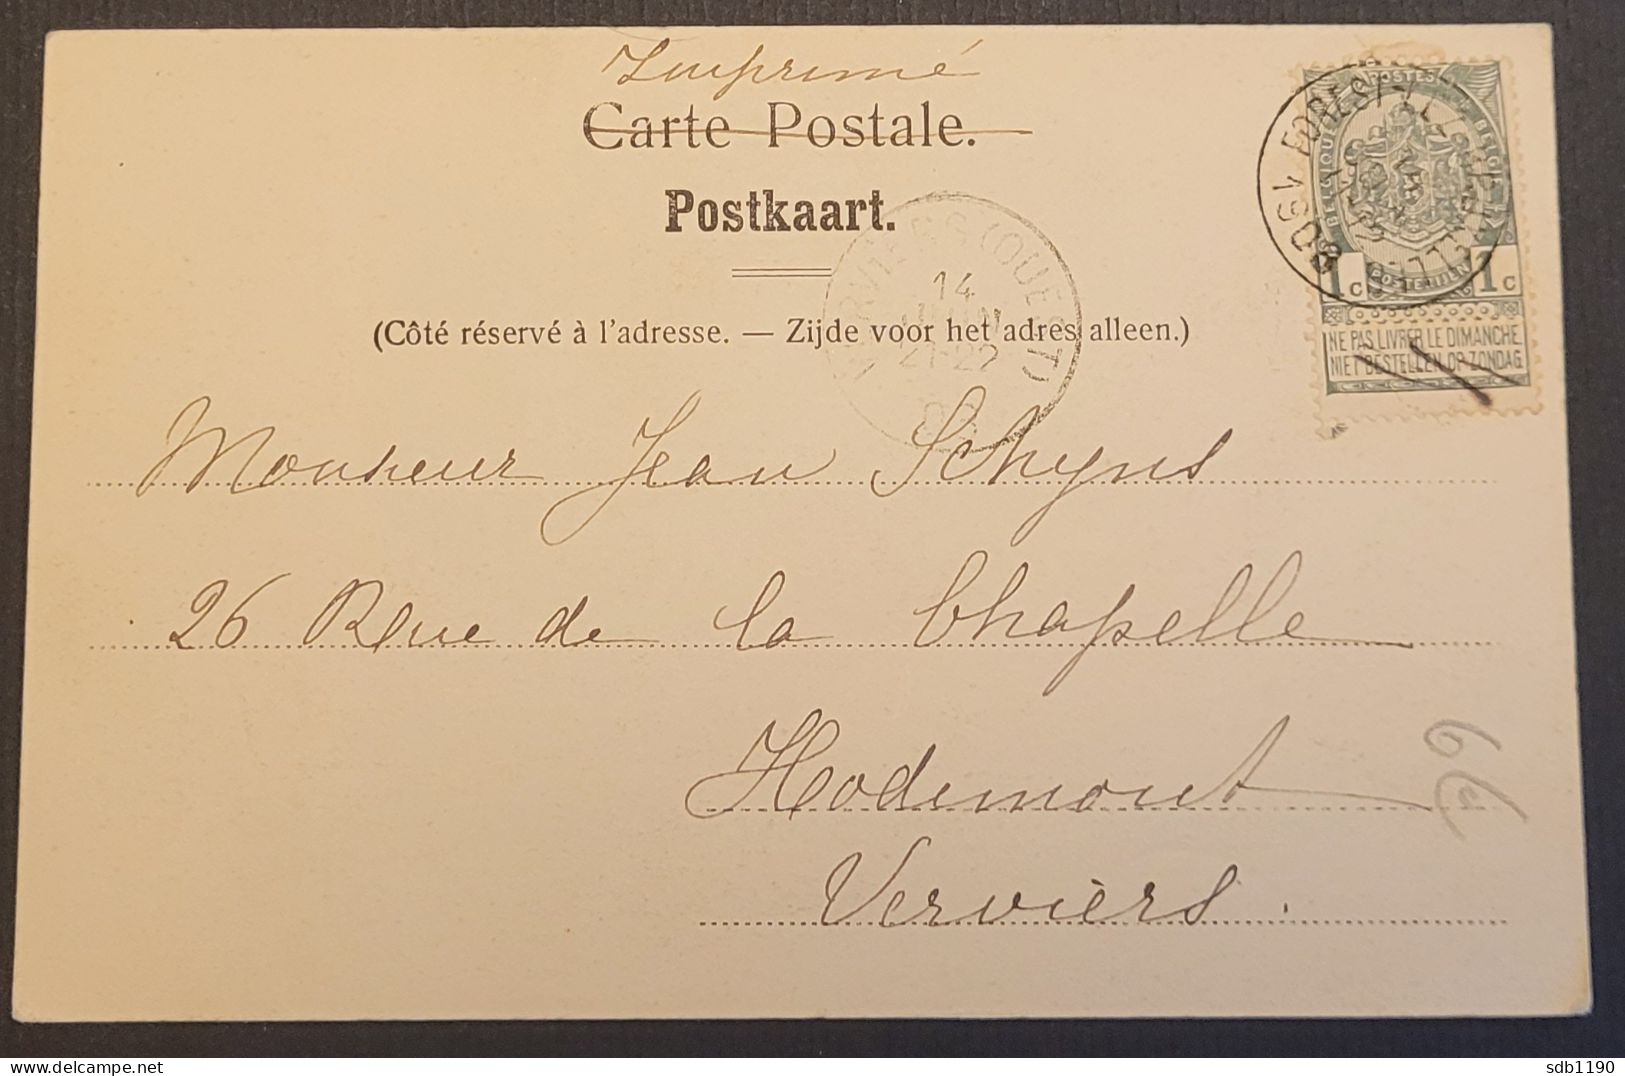 Imprimé
Carte Postale.
Postkaart.
(Côté réservé à l'adresse. — Zijde voor het adres alleen.)
POSTES
BELGIQUE
BELGIË
POSTERIJEN
1c 1c
NE PAS LIVRER LE DIMANCHE
NIET BESTELLEN OP ZONDAG
VERVIERS (OUEST)
14
JUIN
21-22
Monsieur Jean Schyns
26 Rue de la Chapelle
Hodimont
Verviers.
6€
sdb1190